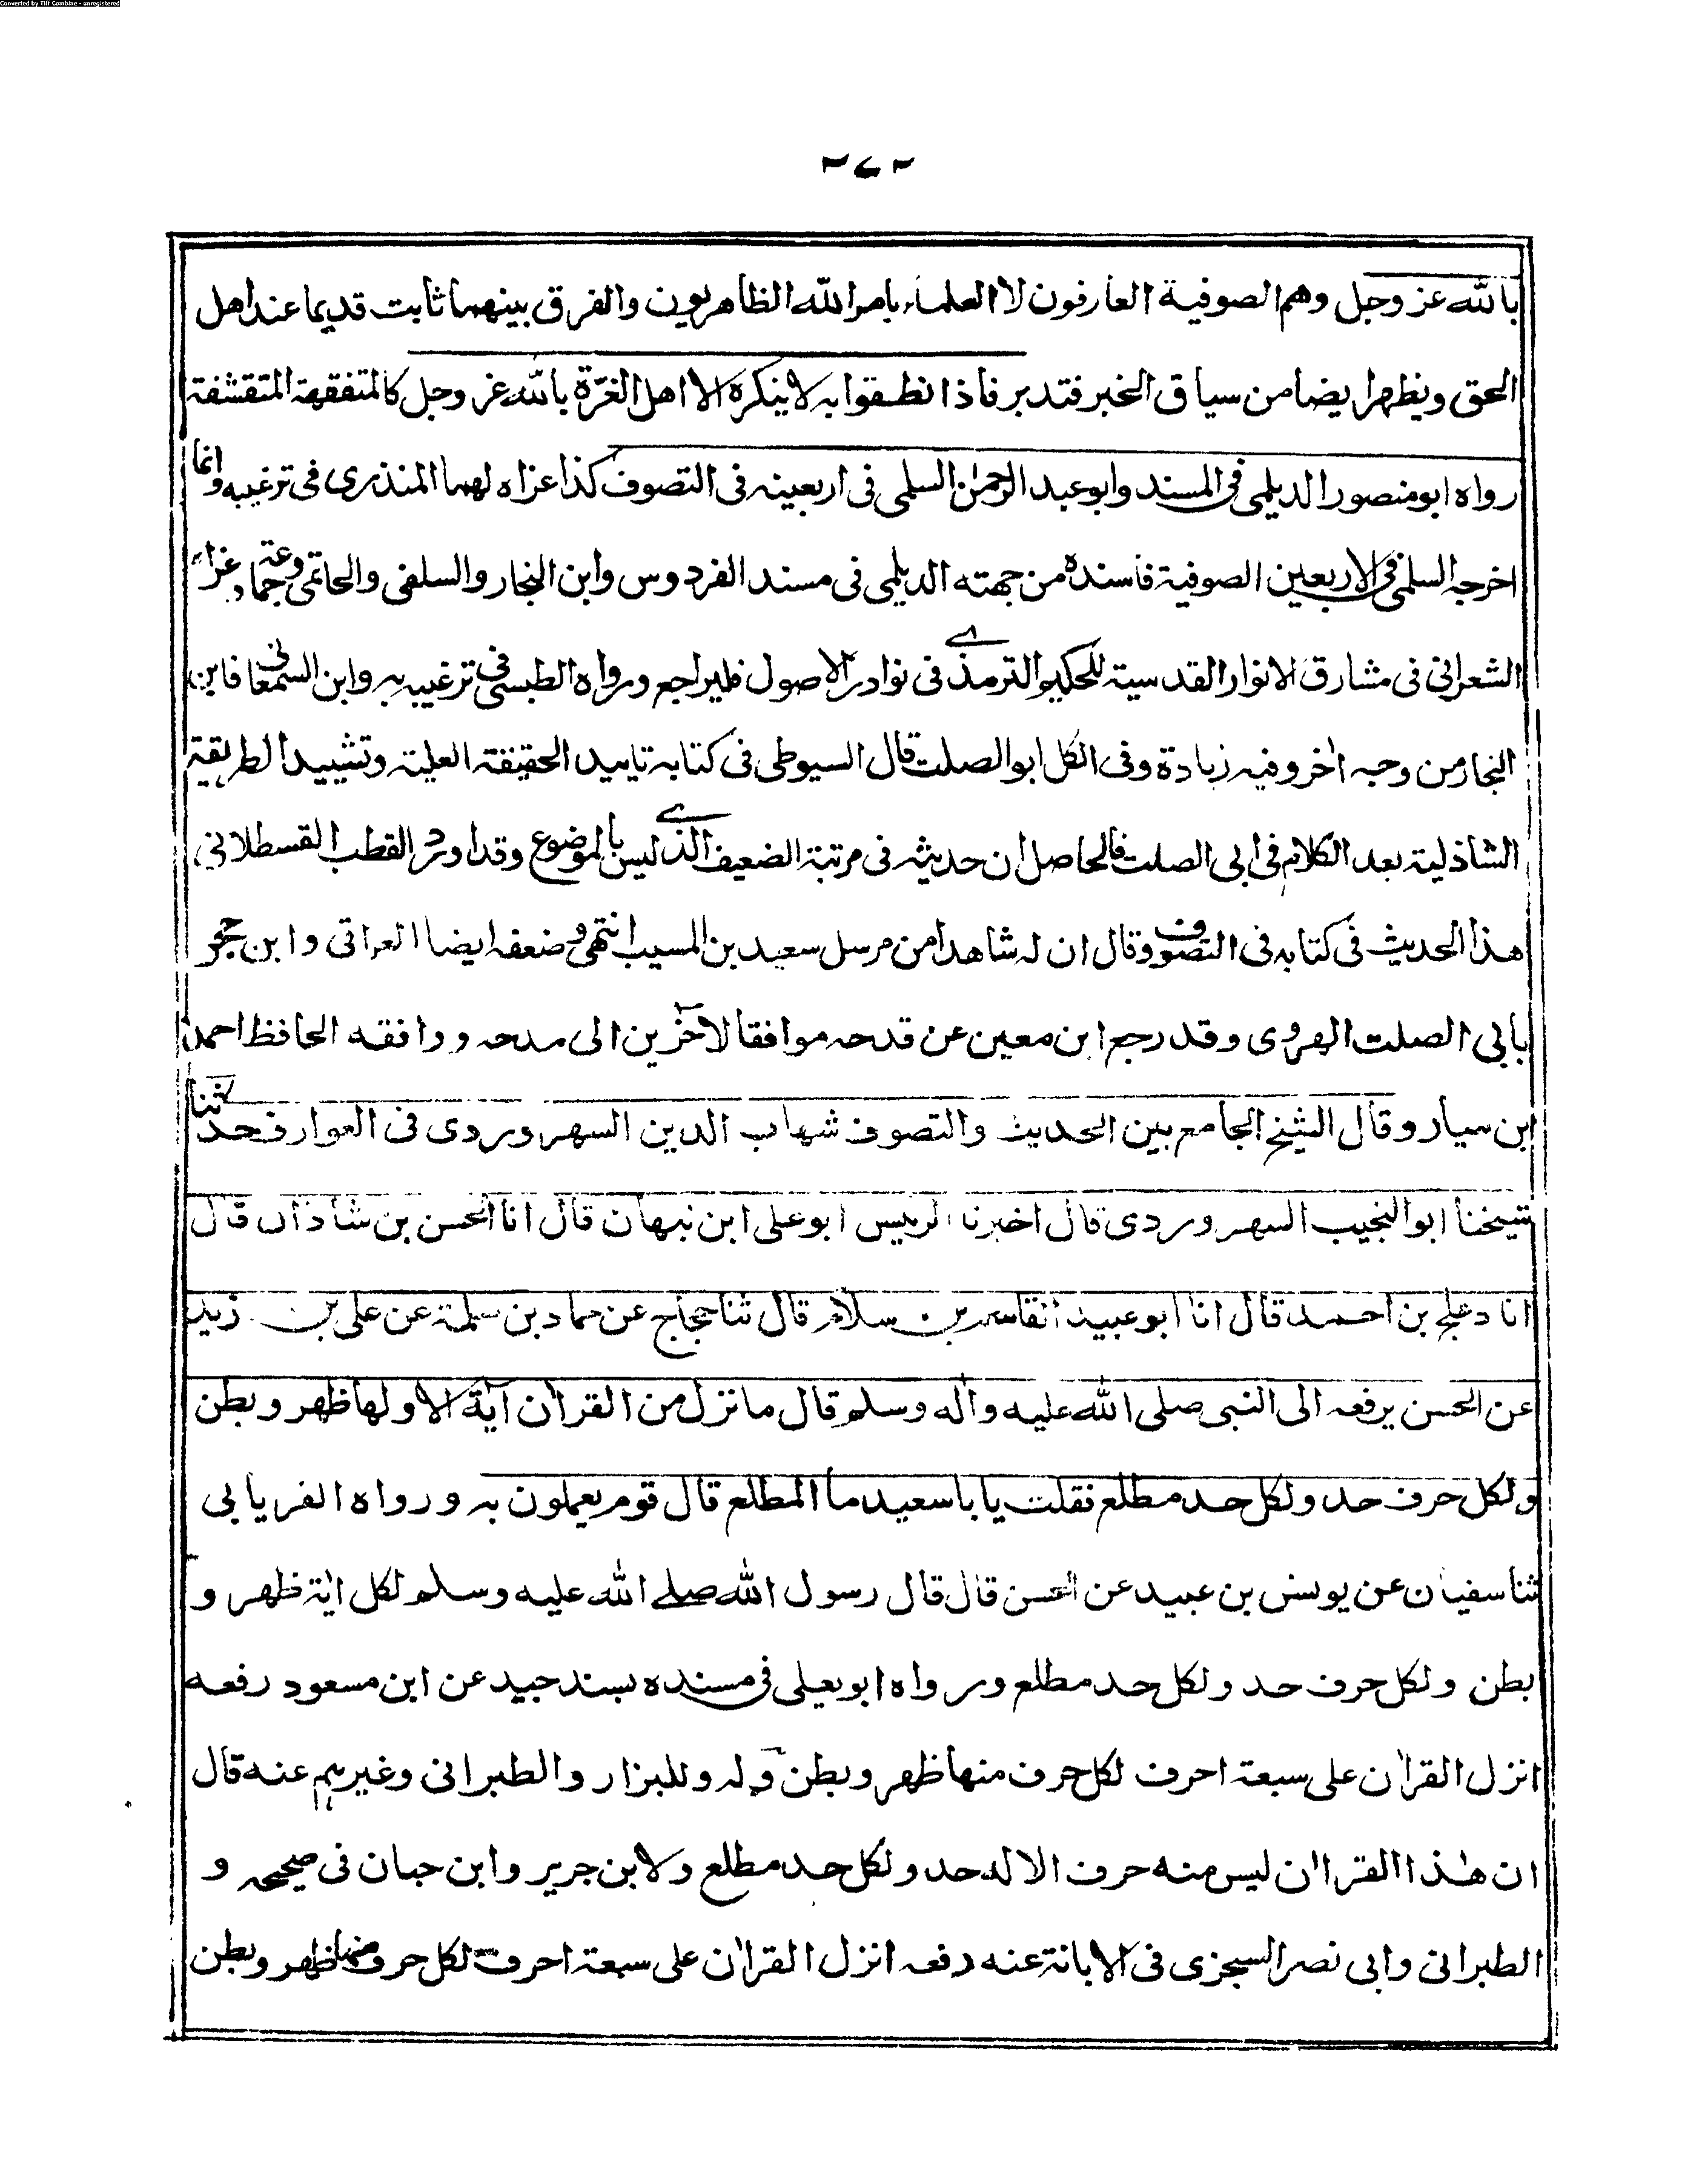 Converted by Tiff Combine - unregistered
بالله عز وجل وهم الصوفية العارفون لا العلماء بامر الله الظاهريون والفرق بينهما ثابت قديما عند اهل
الحق ويظهر ايضا من سياق الخبر فتدبر فاذا نطقوا به لا ينكره الا اهل الغرّة بالله عز وجل كالمتفقهة المتقشفة
رواه ابو منصور الديلمى فى المسند وابو عبد الرحمٰن السلمى فى اربعينه فى التصوف كذا عزاه لهما المنذرى فى ترغيبه وانما
اخرجه السلمى فى الاربعين الصوفية فاسنده من جهته الديلمى فى مسند الفردوس وابن النجار والسلفى والحاتمى وجماعة وعزاه
الشعرانى فى مشارق الانوار القدسية للحكيم الترمذى فى نوادر الاصول فليراجع ورواه الطبسى فى ترغيبه به وابن السمعانى فابن
النجار من وجه اٰخر وفيه زيادة وفى الكل ابو الصلت قال السيوطى فى كتابه تاييد الحقيقة العلية وتشييد الطريقة
الشاذلية بعد الكلام فى ابى الصلت فالحاصل ان حديثه فى مرتبة الضعيف الذى ليس بالموضوع وقد اورد القطب القسطلانى
هذا الحديث فى كتابه فى التصوف وقال ان له شاهدا من مرسل سعيد بن المسيب انتهى وضعفه ايضا العراقى وابن حجر
بابى الصلت الهروى وقد رجع ابن معين عن قدحه موافقا لاٰخرين الى مدحه ووافقه الحافظ احمد
ابن سيار وقال الشيخ الجامع بين الحديث والتصوف شهاب الدين السهروردى فى العوارف حدثنا
شيخنا ابو النجيب السهروردى قال اخبرنا الرئيس ابو على ابن نبهان قال انا الحسن بن شاذان قال
انا دعلج بن احمد قال انا ابو عبيد القاسم بن سلام قال ثنا حجاج عن حماد بن سلمة عن على بن زيد
عن الحسن يرفعه الى النبى صلى الله عليه واٰله وسلم قال ما نزل من القراٰن اٰية الا ولها ظهر وبطن
ولكل حرف حد ولكل حد مطلع فقلت يا با سعيد ما المطلع قال قوم يعملون به ورواه الفريابى
ثنا سفيان عن يونس بن عبيد عن الحسن قال قال رسول الله صلى الله عليه وسلم لكل اٰية ظهر و
بطن ولكل حرف حد ولكل حد مطلع ورواه ابو يعلى فى مسنده بسند جيد عن ابن مسعود رفعه
انزل القراٰن على سبعة احرف لكل حرف منها ظهر وبطن وله وللبزار والطبرانى وغيرهم عنه قال
ان هٰذا القراٰن ليس منه حرف الا له حد ولكل حد مطلع ولابن جرير وابن حبان فى صحيحه و
الطبرانى وابى نصر السجزى فى الابانة عنه رفعه انزل القراٰن على سبعة احرف لكل حرف منها ظهر وبطن